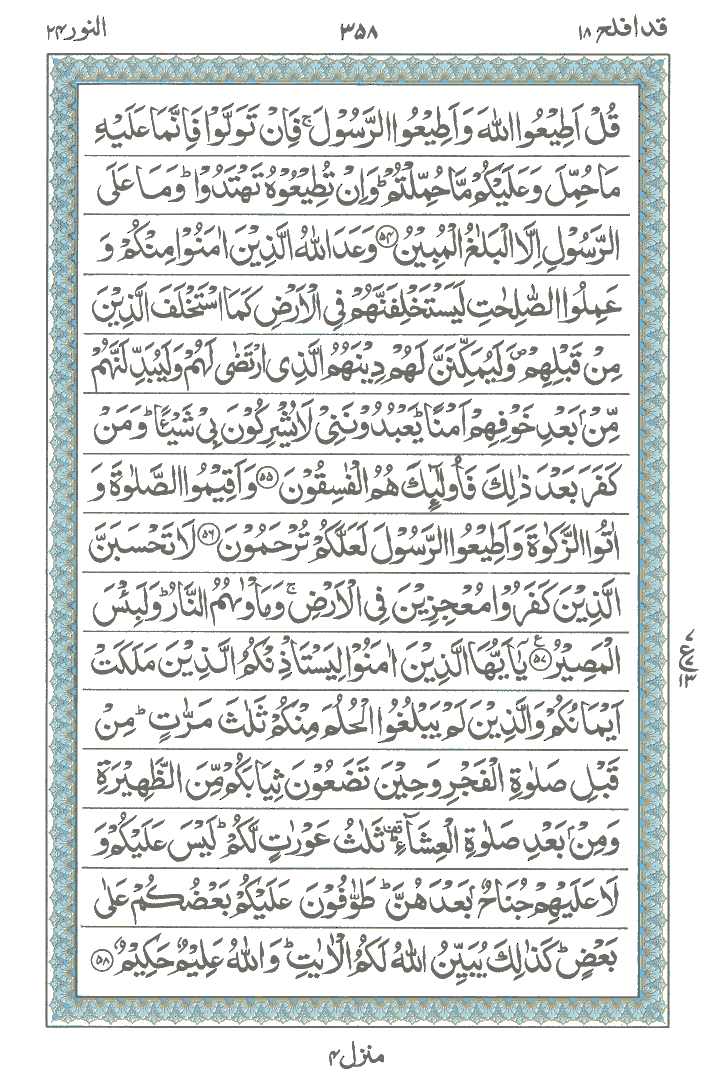 قد افلح ۱۸ ۳۵۸ النور ۲۴
قُلْ اَطِیْعُوا اللّٰهَ وَ اَطِیْعُوا الرَّسُوْلَ ۚ فَاِنْ تَوَلَّوْا فَاِنَّمَا عَلَیْهِ
مَا حُمِّلَ وَ عَلَیْكُمْ مَّا حُمِّلْتُمْ ؕ وَ اِنْ تُطِیْعُوْهُ تَهْتَدُوْا ؕ وَ مَا عَلَی
الرَّسُوْلِ اِلَّا الْبَلٰغُ الْمُبِیْنُ ﴿۵۴﴾ وَعَدَ اللّٰهُ الَّذِیْنَ اٰمَنُوْا مِنْكُمْ وَ
عَمِلُوا الصّٰلِحٰتِ لَیَسْتَخْلِفَنَّهُمْ فِی الْاَرْضِ كَمَا اسْتَخْلَفَ الَّذِیْنَ
مِنْ قَبْلِهِمْ ۪ وَ لَیُمَكِّنَنَّ لَهُمْ دِیْنَهُمُ الَّذِی ارْتَضٰی لَهُمْ وَ لَیُبَدِّلَنَّهُمْ
مِّنْۢ بَعْدِ خَوْفِهِمْ اَمْنًا ؕ یَعْبُدُوْنَنِیْ لَا یُشْرِكُوْنَ بِیْ شَیْـًٔا ؕ وَ مَنْ
كَفَرَ بَعْدَ ذٰلِكَ فَاُولٰٓىِٕكَ هُمُ الْفٰسِقُوْنَ ﴿۵۵﴾ وَ اَقِیْمُوا الصَّلٰوةَ وَ
اٰتُوا الزَّكٰوةَ وَ اَطِیْعُوا الرَّسُوْلَ لَعَلَّكُمْ تُرْحَمُوْنَ ﴿۵۶﴾ لَا تَحْسَبَنَّ
الَّذِیْنَ كَفَرُوْا مُعْجِزِیْنَ فِی الْاَرْضِ ۚ وَ مَاْوٰىهُمُ النَّارُ ؕ وَ لَبِئْسَ
الْمَصِیْرُ ﴿۵۷﴾ ع یٰۤاَیُّهَا الَّذِیْنَ اٰمَنُوْا لِیَسْتَاْذِنْكُمُ الَّذِیْنَ مَلَكَتْ
اَیْمَانُكُمْ وَ الَّذِیْنَ لَمْ یَبْلُغُوا الْحُلُمَ مِنْكُمْ ثَلٰثَ مَرّٰتٍ ؕ مِنْ
قَبْلِ صَلٰوةِ الْفَجْرِ وَ حِیْنَ تَضَعُوْنَ ثِیَابَكُمْ مِّنَ الظَّهِیْرَةِ
وَ مِنْۢ بَعْدِ صَلٰوةِ الْعِشَآءِ ۫ؕ ثَلٰثُ عَوْرٰتٍ لَّكُمْ ؕ لَیْسَ عَلَیْكُمْ وَ
لَا عَلَیْهِمْ جُنَاحٌۢ بَعْدَهُنَّ ؕ طَوّٰفُوْنَ عَلَیْكُمْ بَعْضُكُمْ عَلٰی
بَعْضٍ ؕ كَذٰلِكَ یُبَیِّنُ اللّٰهُ لَكُمُ الْاٰیٰتِ ؕ وَ اللّٰهُ عَلِیْمٌ حَكِیْمٌ ﴿۵۸﴾
۷
ع
۱۳
منزل ۴